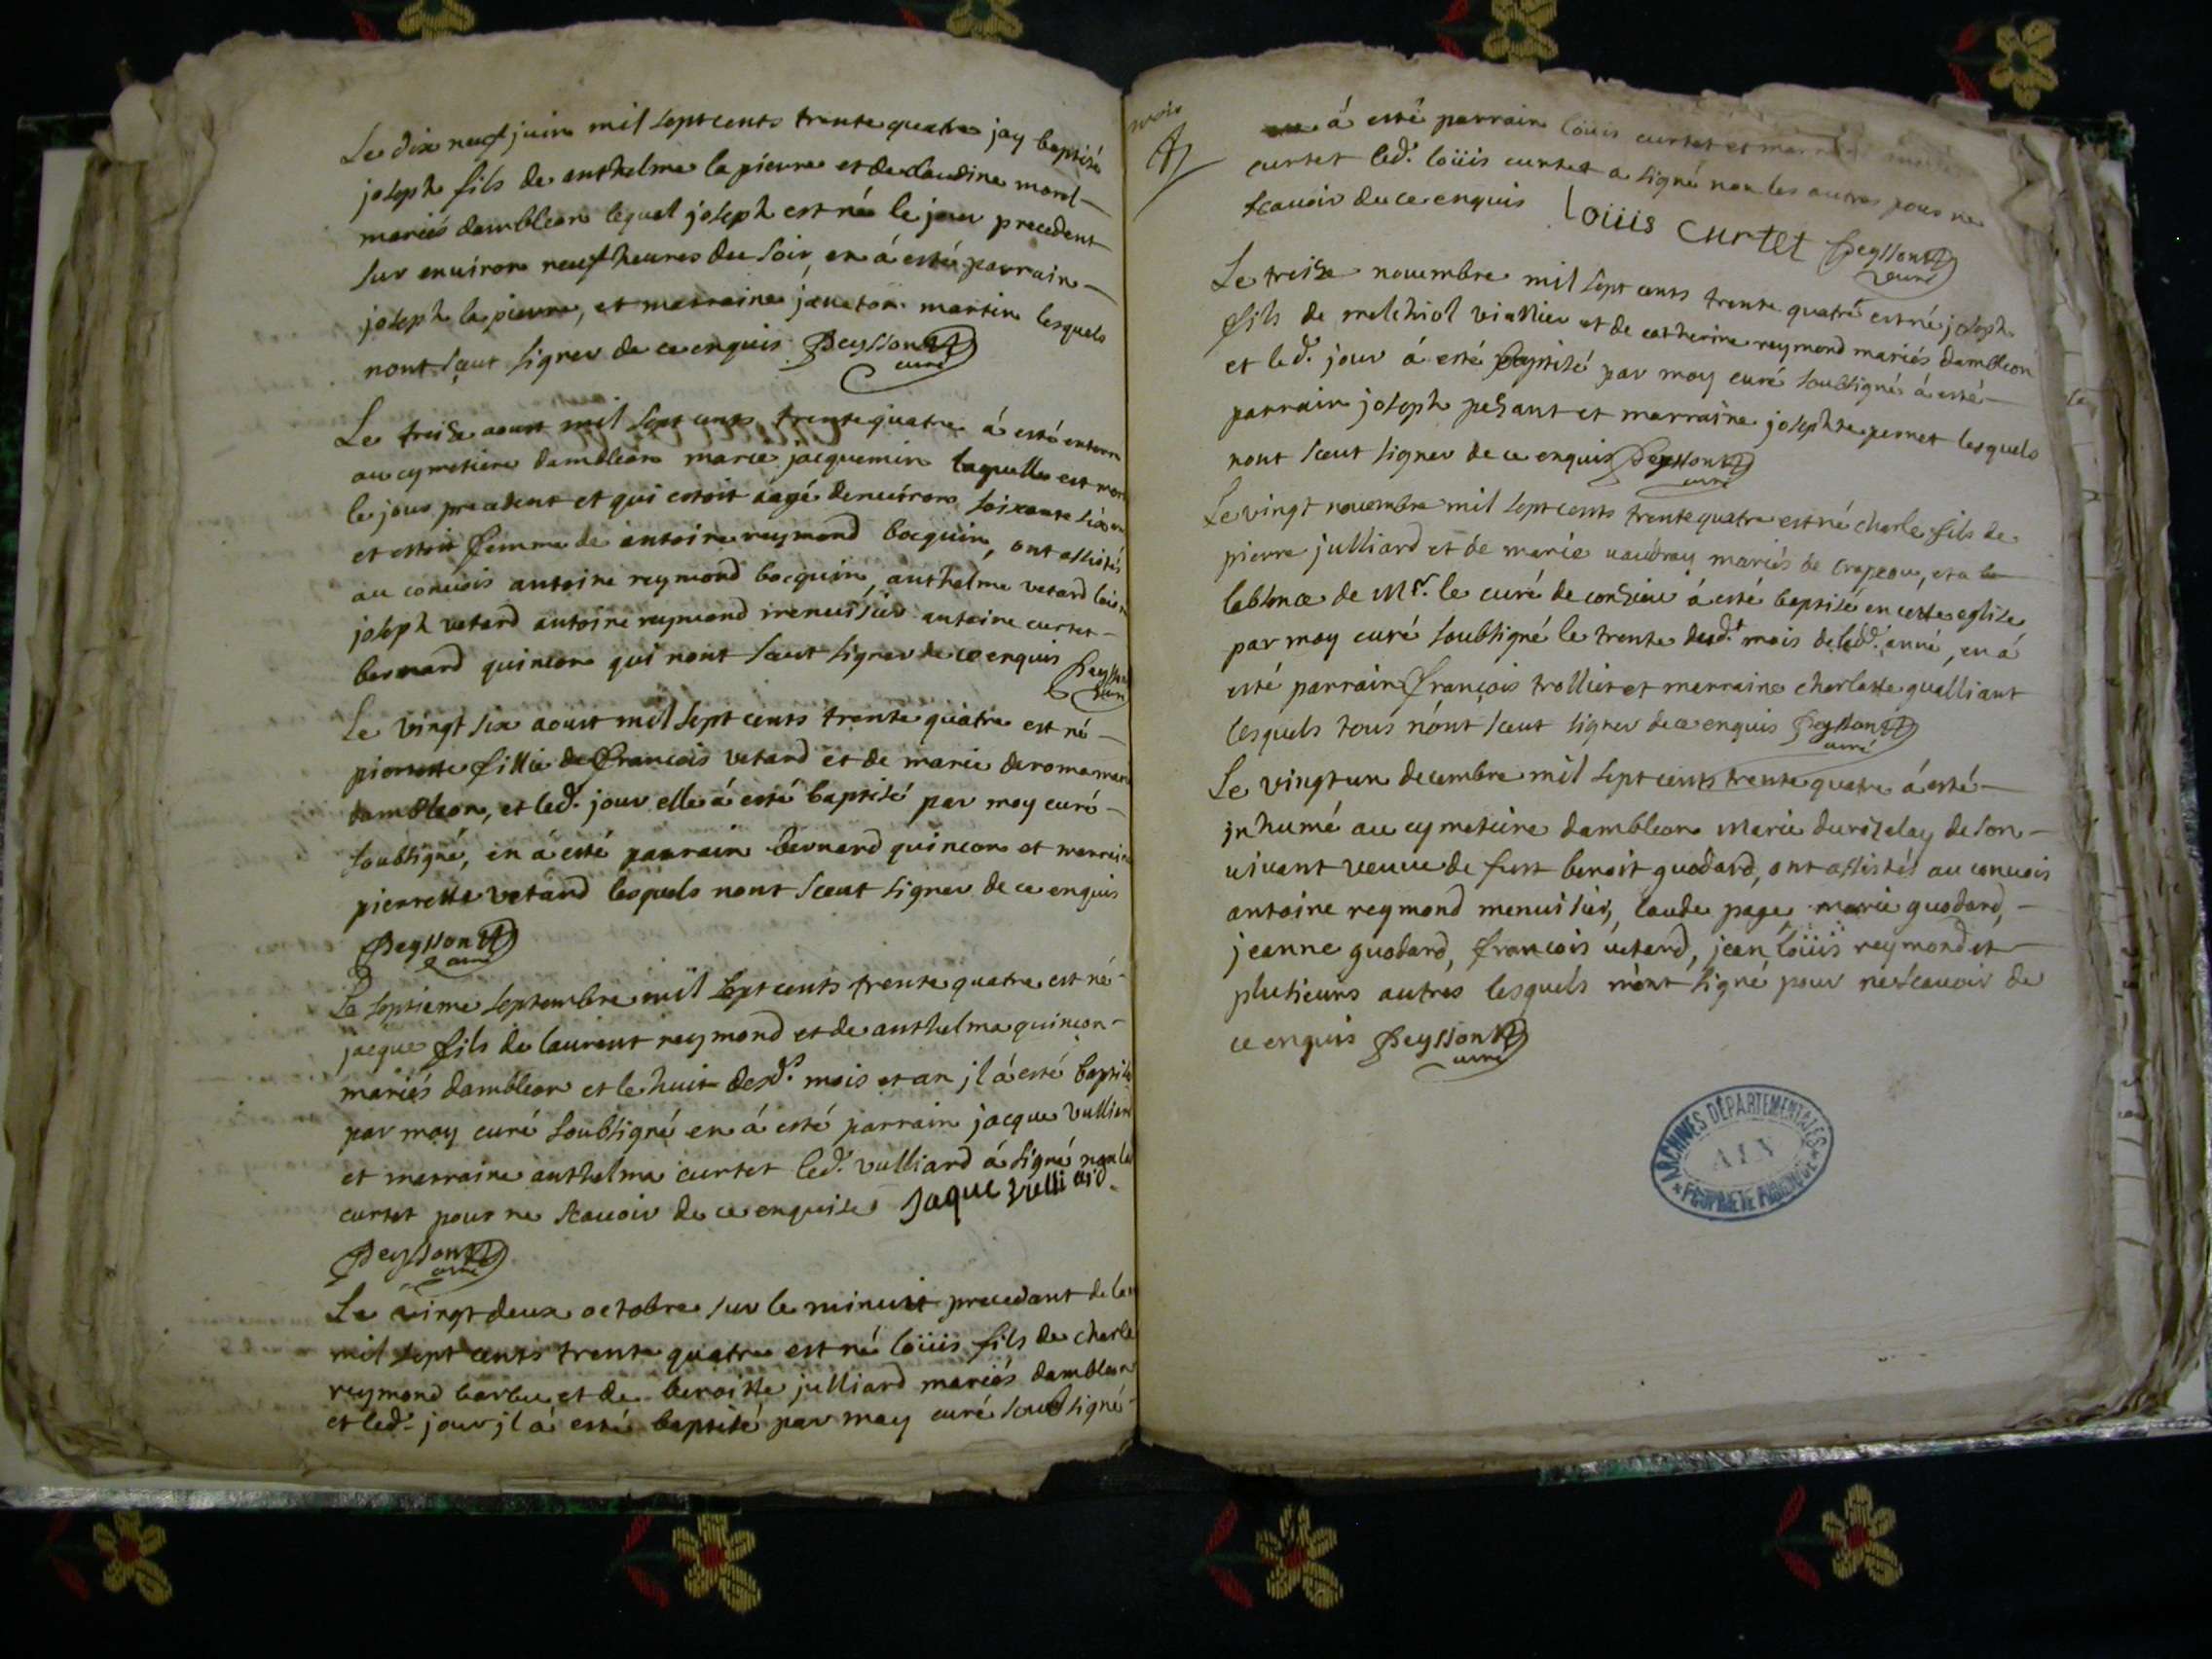 Le dix neuf juin mil sept cents trente quatre jay baptisé
joseph fils de anthelme la pierre et de claudine morel
mariés dambleon lequel joseph est né le jour precedent
sur environ neuf heures du soir, en á esté parrain
joseph la pierre, et marraine janeton martin lesquels
nont sceut signer de ce enquis Peysson
curé
Le treize aoust mil sept cents trente quatre á esté enterré
au cymetiere dambleon marie jacquemin laquelle est mor
le jour precedent et qui estoit aagé denuiron soixante six
et estoit femme de antoine reymond bocquin, ont assistés
au convois antoine reymond bocquin, anthelme vetard
joseph vetard antoine reymond menuisier antoine curtet
bernard quincon qui nont sceut signer de ce enquis Peysson
curé
Le vingt six aoust mil sept cents trente quatre est né
pierrette fillie de francois vetard et de marie deroma
dambleon, et led. jour elle á esté baptisé par moy curé
soubsigné, en á esté parrain bernard quincon et marrein
pierrette vetard lesquels nont sceut signer de ce enquis
Peysson
curé
Le septieme septembre mil sept cents trente quatre est né
jacque fils de laurent reymond et de anthelma quincon
mariés dambleon et le huit desd. mois et an jl á esté baptisé
par moy curé soubsigné en á esté parrain jacque vulliard
et marraine anthelma curtet led. vulliard á signé non la
curtet pour ne scauoir de ce enquise Jaque vulliard
Peysson
curé
Le vingt deux octobre sur le minuit precedant de lan
mil sept cents trente quatre est né loüis fils de charle
reymond barbu et de benoitte julliard mariés dambleon
et led. jour jl á esté baptisé par moy curé soubsigné
á esté parrain loüis curtet et marraine
curtet led. loüis curtet a signé non les autres pour ne
scauoir de ce enquis Loüis Curtet Peysson
curé
Le treize nouembre mil sept cents trente quatre est né joseph
fils de melchiol viallier et de catherine reymond mariés dambleon
et led. jour á esté baptisé par moy curé soubsigné á esté
parrain joseph pesant et marraine josephte pernet lesquels
nont sceut signer de ce enquis Peysson
curé
Le vingt nouembre mil sept cents trente quatre est né charle fils de
pierre julliard et de marie vaudray mariés de crapeou, et a
labsence de Mr. le curé de conzieu á esté baptisé en cette eglise
par moy curé soubsigné le trente desd. mois de lad. anné, en á
esté parrain françois trolliet et marraine charlotte qualliant
lesquels tous nont sceut signer de ce enquis Peysson
curé
Le vingt un decembre mil sept cents trente quatre á esté
jnhumé au cymetiere dambleon Marie durozelay de son
uiuant veuue de fust benoit guodard, ont assistés au conuois
antoine reymond menuisier, claude page marie guodard,
jeanne guodard, francois vetard, jean loüis reymond et
plusieurs autres lesquels nont signé pour ne scauoir de
ce enquis Peysson
curé
ARCHIVES DÉPARTEMENTALES
AIN
PROPRIÉTÉ PUBLIQUE